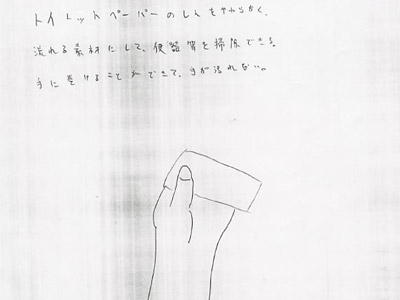 トイレットペーパーのしんをやわらかく、
流れる素材にして、便器等を掃除できる。
手に受けることができて、手が汚れない。